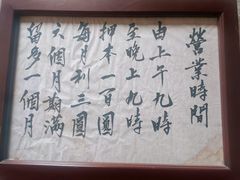 營業時間
由上午九時
至晚上九時
押本一百圓
每月利三圓
六個月期滿
留多一個月